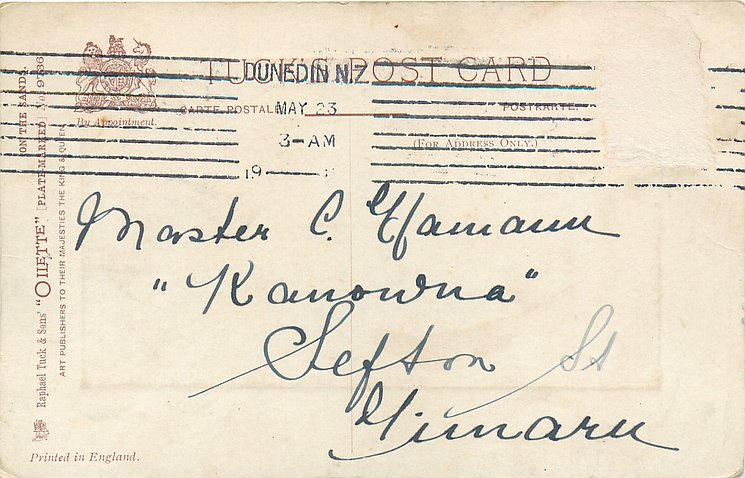 TUCK'S POST CARD
DUNEDIN N.Z
CARTE POSTALE
MAY 23
POSTKARTE.
3-AM
(FOR ADDRESS ONLY.)
19
By Appointment.
Master C. Hamann
"Kanowna"
Sefton St
Timaru
ON THE SANDS.
"OILETTE" [PLATE-MARKED] No. 9736
Raphael Tuck & Sons'
ART PUBLISHERS TO THEIR MAJESTIES THE KING & QUEEN.
Printed in England.